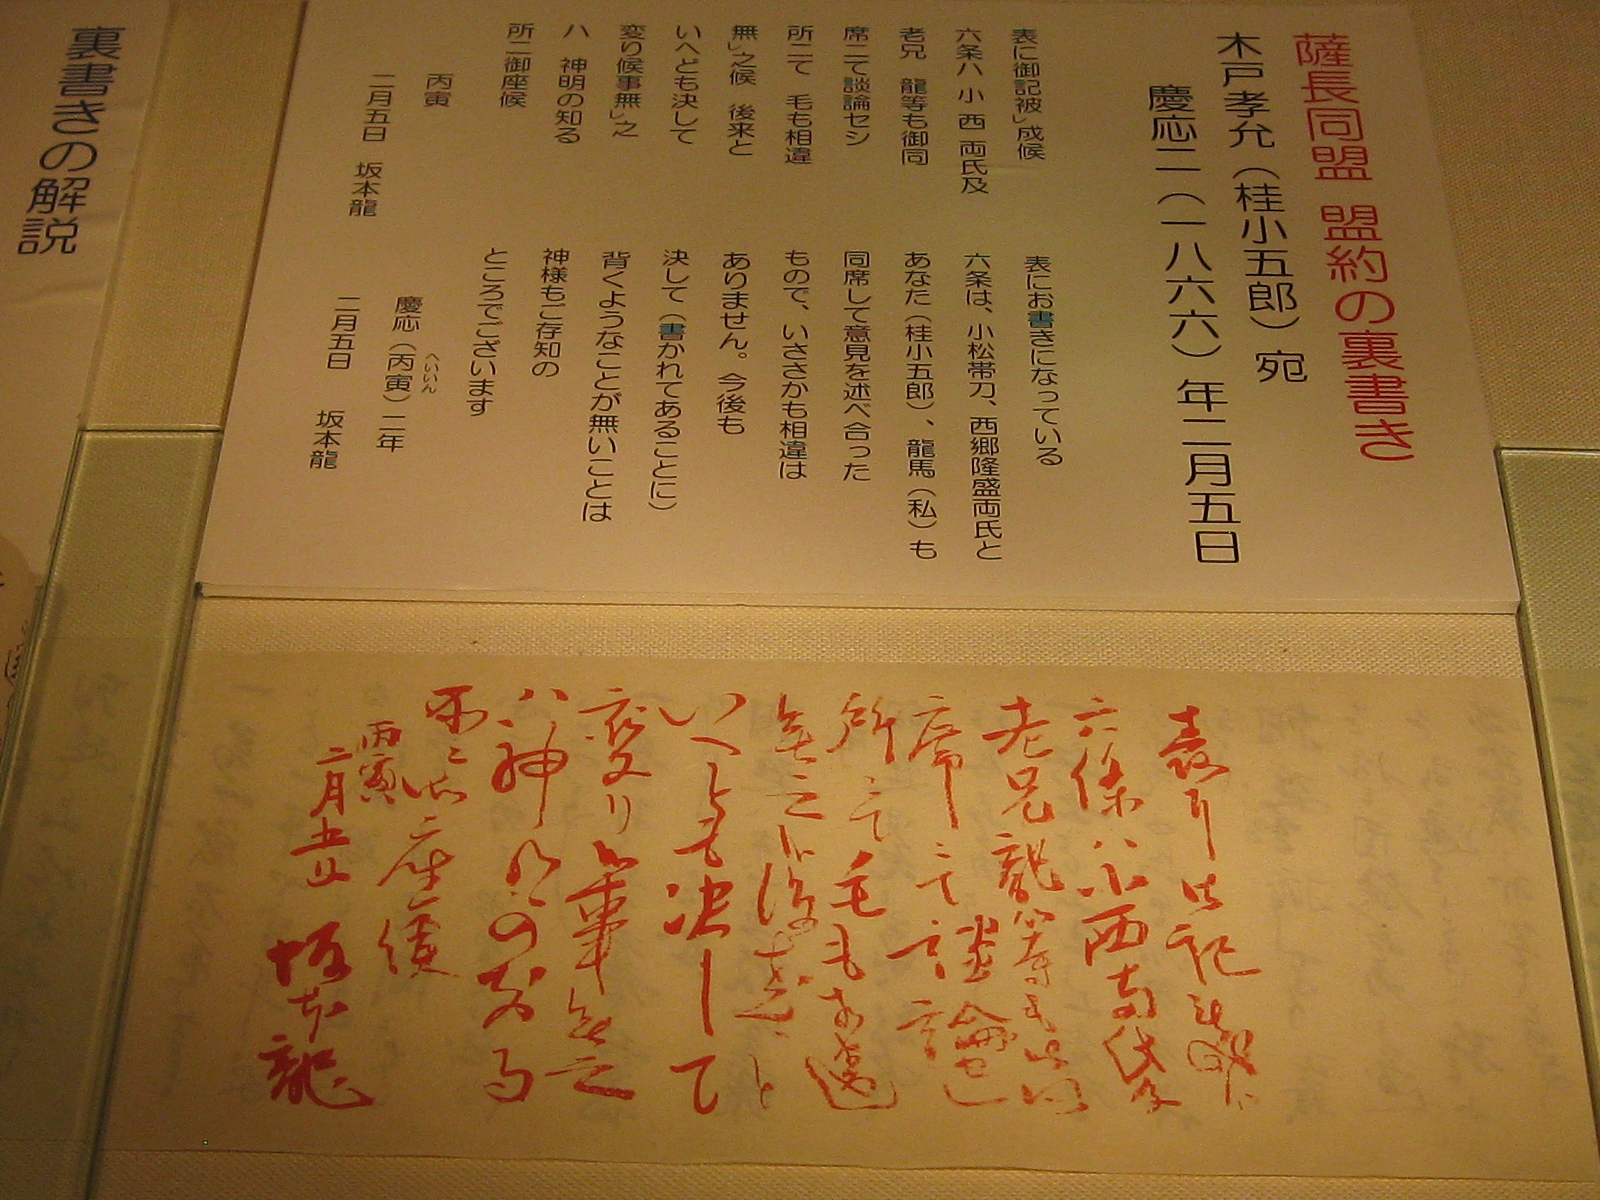 薩長同盟 盟約の裏書き
木戸孝允（桂小五郎）宛
慶応二（一八六六）年二月五日
表に御記被レ成候
六条ハ 小 西 両氏及
老兄 龍等も御同
席ニて談論セシ
所ニて 毛も相違
無レ之候 後来と
いへども決して
変り候事無レ之
ハ 神明の知る
所ニ御座候
丙寅
二月五日 坂本龍
表にお書きになっている
六条は、小松帯刀、西郷隆盛両氏と
あなた（桂小五郎）、龍馬（私）も
同席して意見を述べ合った
もので、いささかも相違は
ありません。今後も
決して（書かれてあることに）
背くようなことが無いことは
神様もご存知の
ところでございます
慶応（丙寅）二年
へいいん
二月五日 坂本龍
裏書きの解説
表ニ御記被成候
六條ハ小西両氏及
老兄龍等も御同
席ニて談論セシ
所ニて毛も相違
無之候後来と
いへとも決して
変り候事無之
ハ神明の知る
所ニ御座候
丙寅
二月五日
坂本龍